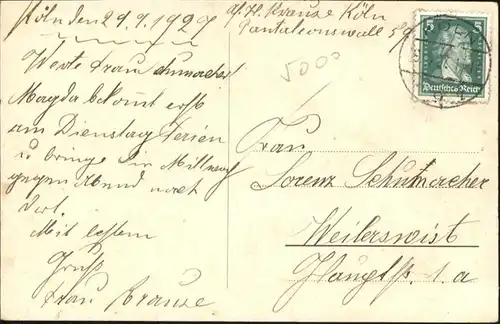 Köln den 29.9.1929
A/ H. Krause Köln
Pantaleonswall 59
5000
5 5
Deutsches Reich
Werte Frau Schumacher!
Magda bekomt erst
am Dienstag Ferien
u bringe Sie Mittwoch
gegen Abend nach
dort.
Mit bestem
Gruß
Frau Krause
Frau
Lorenz Schumacher
Weilerswist
Hauptstr. 1.a